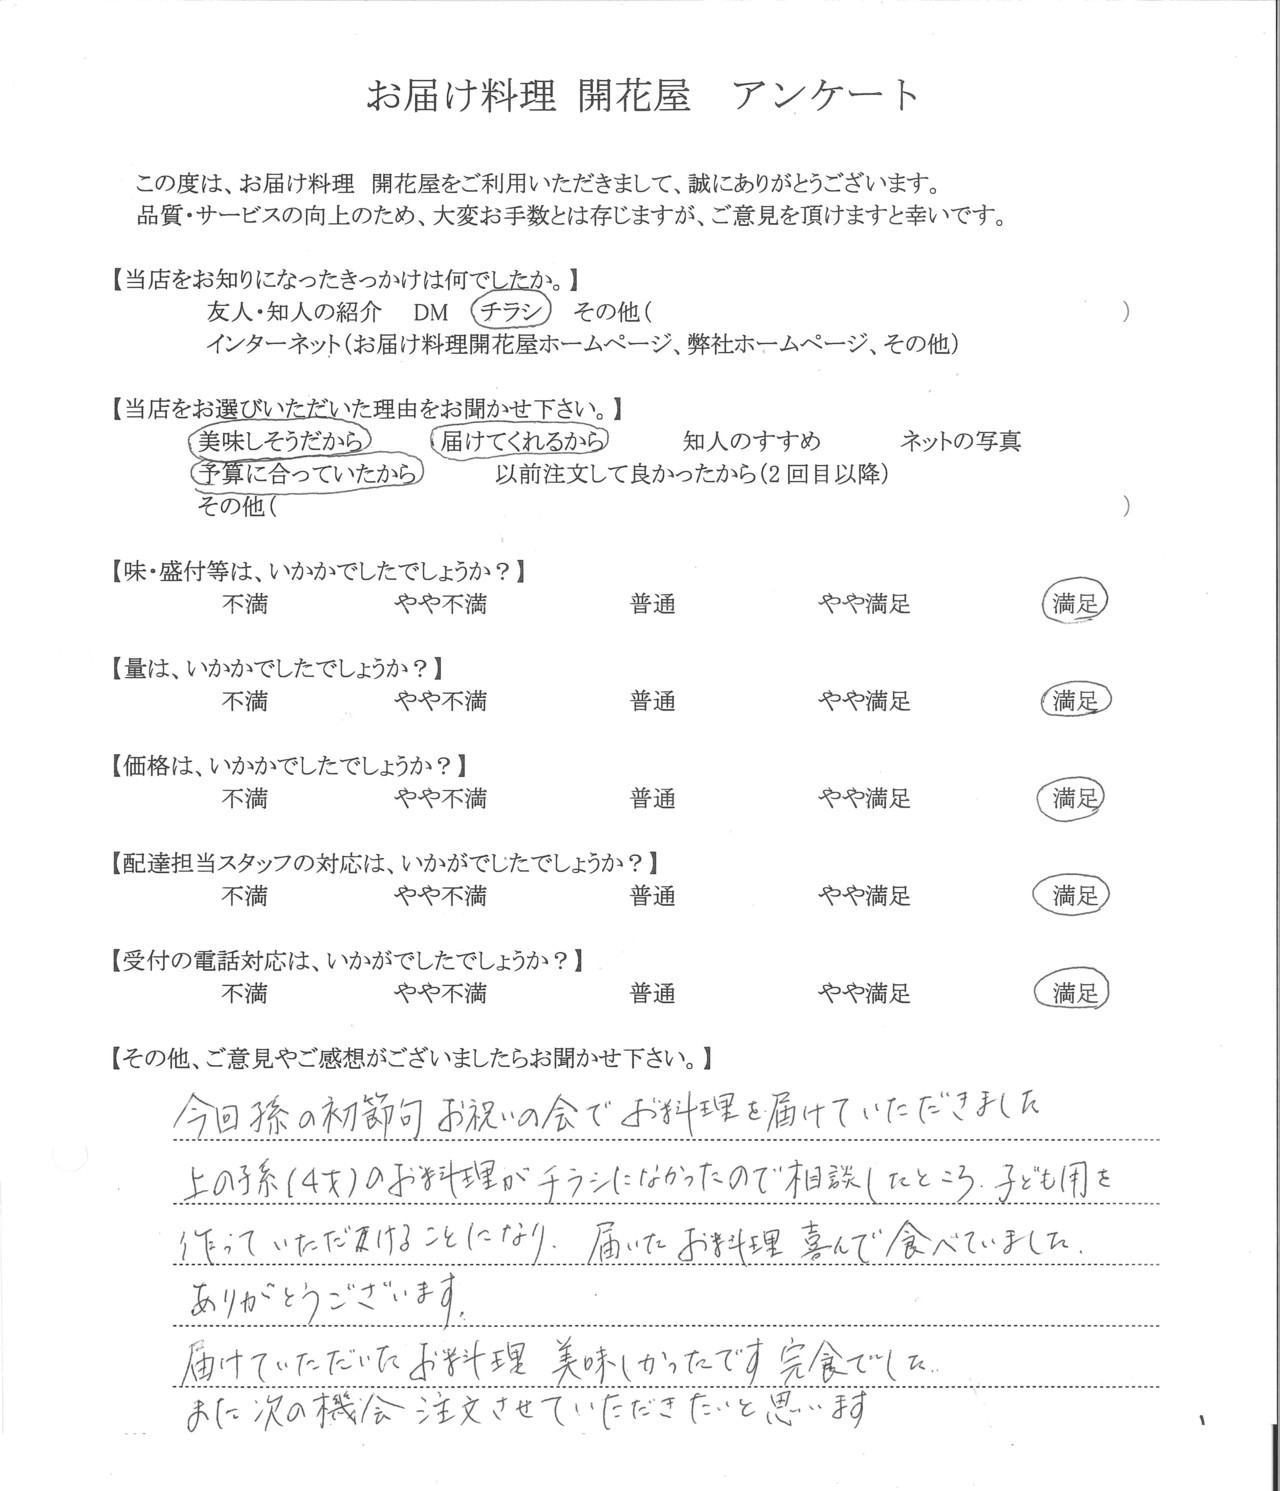 お届け料理 開花屋 アンケート
この度は、お届け料理 開花屋をご利用いただきまして、誠にありがとうございます。
品質・サービスの向上のため、大変お手数とは存じますが、ご意見を頂けますと幸いです。
【当店をお知りになったきっかけは何でしたか。】
友人・知人の紹介 DM チラシ その他( )
インターネット(お届け料理開花屋ホームページ、弊社ホームページ、その他)
【当店をお選びいただいた理由をお聞かせ下さい。】
美味しそうだから 届けてくれるから 知人のすすめ ネットの写真
予算に合っていたから 以前注文して良かったから(2回目以降)
その他( )
【味・盛付等は、いかかでしたでしょうか?】
不満 やや不満 普通 やや満足 満足
【量は、いかかでしたでしょうか?】
不満 やや不満 普通 やや満足 満足
【価格は、いかかでしたでしょうか?】
不満 やや不満 普通 やや満足 満足
【配達担当スタッフの対応は、いかがでじたでしょうか?】
不満 やや不満 普通 やや満足 満足
【受付の電話対応は、いかがでしたでしょうか?】
不満 やや不満 普通 やや満足 満足
【その他、ご意見やご感想がございましたらお聞かせ下さい。】
今回孫の初節句お祝いの会でお料理を届けていただきました
上の孫(4才)のお料理がチラシになかったので相談したところ、子ども用を
作っていただけることになり、届いたお料理喜んで食べていました。
ありがとうございます。
届けていただいたお料理 美味しかったです 完食でした。
また次の機会 注文させていただきたいと思います